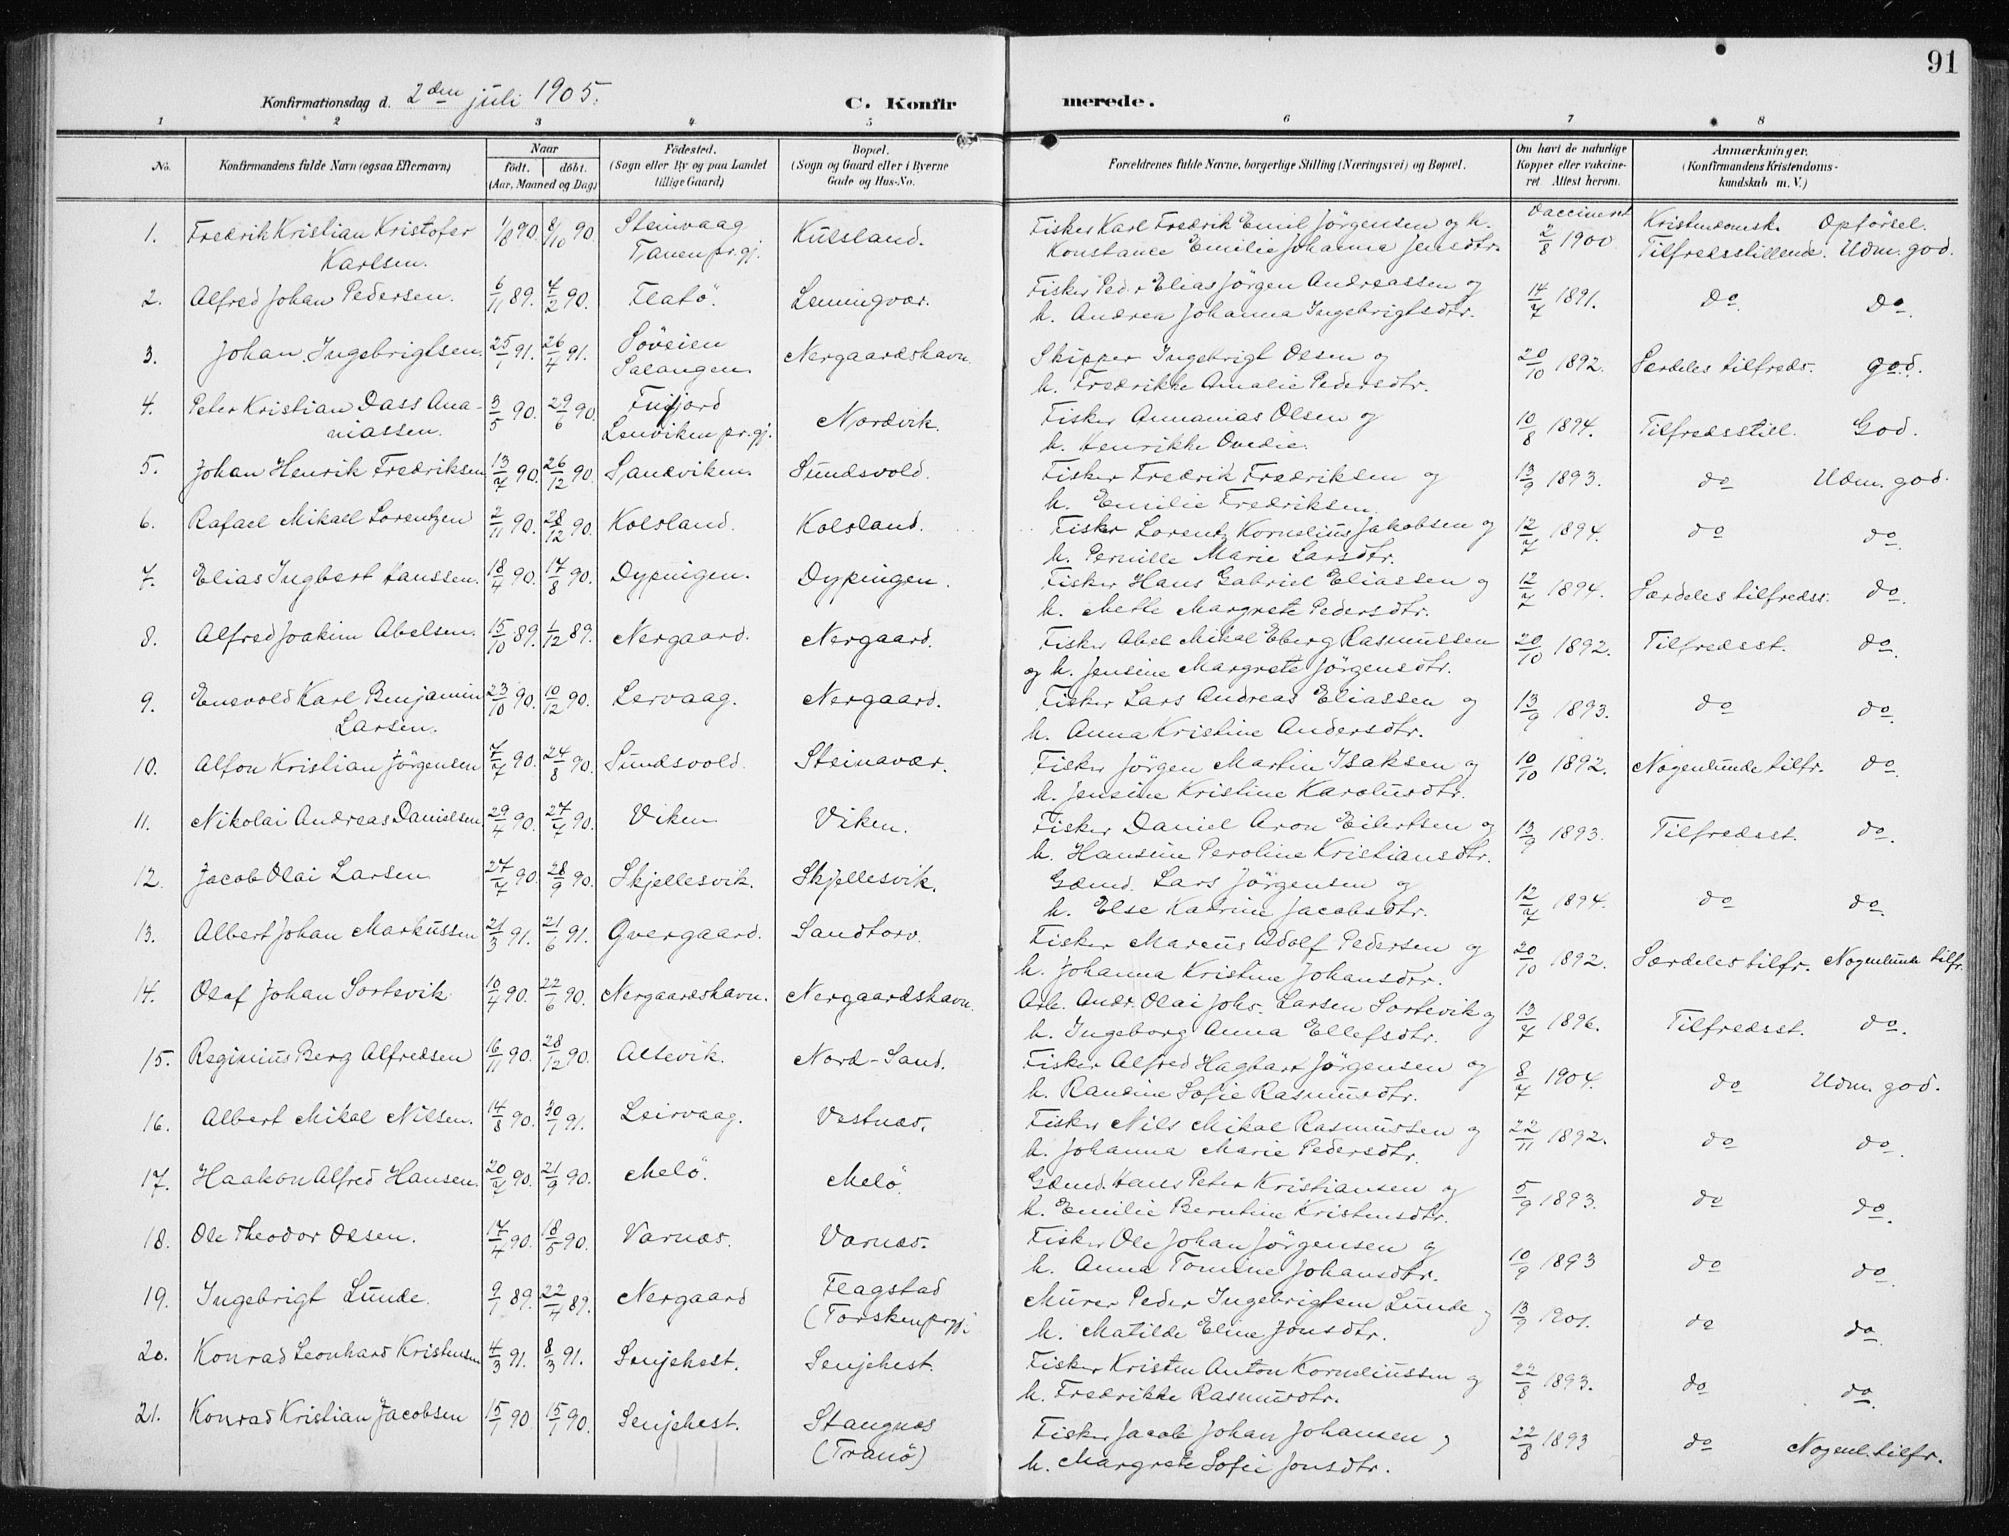 91
Konfirmationsdag d. 2den juli 1905.
C. Konfirmerede.
1 2 3 4 5 6 7 8
No.
Konfirmandens fulde Navn (ogsaa Efternavn)
Naar
født. døbt.
(Aar, Maaned og Dag)
Fødested.
(Sogn eller By og paa Landet
tillige Gaard)
Bopæl.
(Sogn og Gaard eller i Byerne
Gade og Hus-No.
Forældrenes fulde Navne, borgerlige Stilling (Næringsvei) og Bopæl.
Om havt de naturlige
Kopper eller vakcine-
ret. Attest herom.
Anmærkninger.
(Konfirmandens Kristendoms-
kundskab m. V.)
1. Fredrik Kristian Kristofer 1/8 90. 8/10 90. Steinvaag Kulsland. Fisker Karl Fredrik Emil Jörgensen og h. Vaccineret Kristendomsk. Opförsel.
Karlsen. Tranen pr.gj. Konstance Emilie Johanna Jensdtr. 2/8 1900 Tilfredsstillende. Udm. god.
2. Alfred Johan Pedersen. 6/11 89. 4/2 90. Flatö. Lemingvær. Fisker Peder Elias Jörgen Andreassen og 14/7 1891. do. do.
h. Andrea Johanna Ingebrigtsdtr.
3. Johan Ingebrigtsen. 25/1 91. 26/4 91. Söveien Nergaardshavn Skipper Ingebrigt Olsen og 20/10 1892. Særdeles tilfreds. god.
Salangen. h. Fredrikke Amalie Pedersdtr.
4. Peter Kristian Dass Ana- 3/5 90. 29/6 90. Finfjord Nordvik. Fisker Annanias Olsen og 10/8 1894. Tilfredsstill. God.
niassen. Lenviken pr.gj. h. Henrikke Ovedie.
5. Johan Henrik Fredriksen 13/7 90. 26/12 90. Sandviken. Sundsvold. Fisker Fredrik Fredriksen og 13/9 1893. do Udm. god.
h. Emilie Fredriksen.
6. Rafael Mikael Lorentzen 2/11 90. 28/12 90. Kolsland. Kolsland. Fisker Lorentz Kornelius Jakobsen og 12/7 1894. do do.
h. Pernille Marie Larsdtr.
7. Elias Ingbert Hanssen. 18/4 90. 17/8 90. Dypingen. Dypingen. Fisker Hans Gabriel Eliassen og 12/7 1894. Særdeles tilfredss. do.
h. Mette Margrete Pedersdtr.
8. Alfred Joakim Abelsen. 15/10 89. 1/12 89. Nergaard. Nergaard. Fisker Abel Mikal Eberg Rasmussen 20/10 1892. Tilfredsst. do.
og h. Jensine Margrete Jörgensdtr.
9. Enevold Karl Benjamin 23/10 90. 10/12 90. Lervaag. Nergaard. Fisker Lars Andreas Eliassen og 13/9 1893. do do.
Larsen. h. Anna Kristine Andersdtr.
10. Alfon Kristian Jörgensen 7/7 90. 24/8 90. Sundsvold. Steinavær. Fisker Jörgen Martin Isaksen og 10/10 1892. Nogenlunde tilfr. do.
h. Jensine Kristine Karolusdtr.
11. Nikolai Andreas Danielsen. 29/4 90. 27/7 90. Viken Viken. Fisker Daniel Aron Eilertsen og 13/9 1893. Tilfredsst. do.
h. Hansine Peroline Kristiansdtr.
12. Jacob Olai Larsen 27/7 90. 28/9 90. Skjellesvik. Skjellesvik. Gæmd. Lars Jörgensen og 12/7 1894. do do.
h. Else Katrine Jacobsdtr.
13. Albert Johan Markussen 21/3 91. 21/6 91. Overgaard. Sandtorv. Fisker Marcus Adolf Pedersen og 20/10 1892. Særdeles tilfr. Nogenlunde tilfr.
h. Johanna Kristine Johansdtr.
14. Olaf Johan Sortevik 10/4 90. 22/6 90. Nergaardshavn. Nergaardshavn. Arb. Andr. Olai Johs. Larsen Sortevik og 13/7 1896. Tilfredsst. do.
h. Ingeborg Anna Ellefsdtr.
15. Reginius Berg Alfredsen 16/11 90. 28/12 90. Altevik. Nord-Sand. Fisker Alfred Hagbart Jörgensen og 8/7 1904. do Udm. god.
h. Randine Sofie Rasmusdtr.
16. Albert Mikal Nilsen. 14/8 90. 30/1 91. Leirvaag. Vestnæs. Fisker Nils Mikal Rasmussen og 22/11 1892. do do.
h. Johanna Marie Pedersdtr.
17. Haakon Alfred Hansen. 20/7 90. 21/9 90. Melö. Melö. Gæmd. Hans Peter Kristiansen og 5/9 1893. do do.
h. Emilie Berntine Kristensdtr.
18. Ole Theodor Olsen. 17/4 90. 18/5 90. Varnæs. Varnæs. Fisker Ole Johan Jörgensen og 10/9 1893 do do.
h. Anna Tomine Johansdtr.
19. Ingebrigt Lunde. 9/1 89. 22/4 89. Nergaard Flagstad Murer Peder Ingebrigtsen Lunde og 13/9 1901. do do.
(Torsken prgj. h. Matilde Eline Jonsdtr.
20. Konrad Leonhard Kristensen 4/3 91. 8/3 91. Senjehest. Senjehest. Fisker Kristen Anton Korneliussen og 22/8 1893. do do.
h. Fredrikke Rasmusdtr.
21. Konrad Kristian Jacobsen 15/1 90 15/1 90. Senjehest. Stangnes Fisker Jacob Johan Johansen og 22/8 1893 do Nogenl. tilfr.
(Tranö) h. Margrete Sofie Jonsdtr.